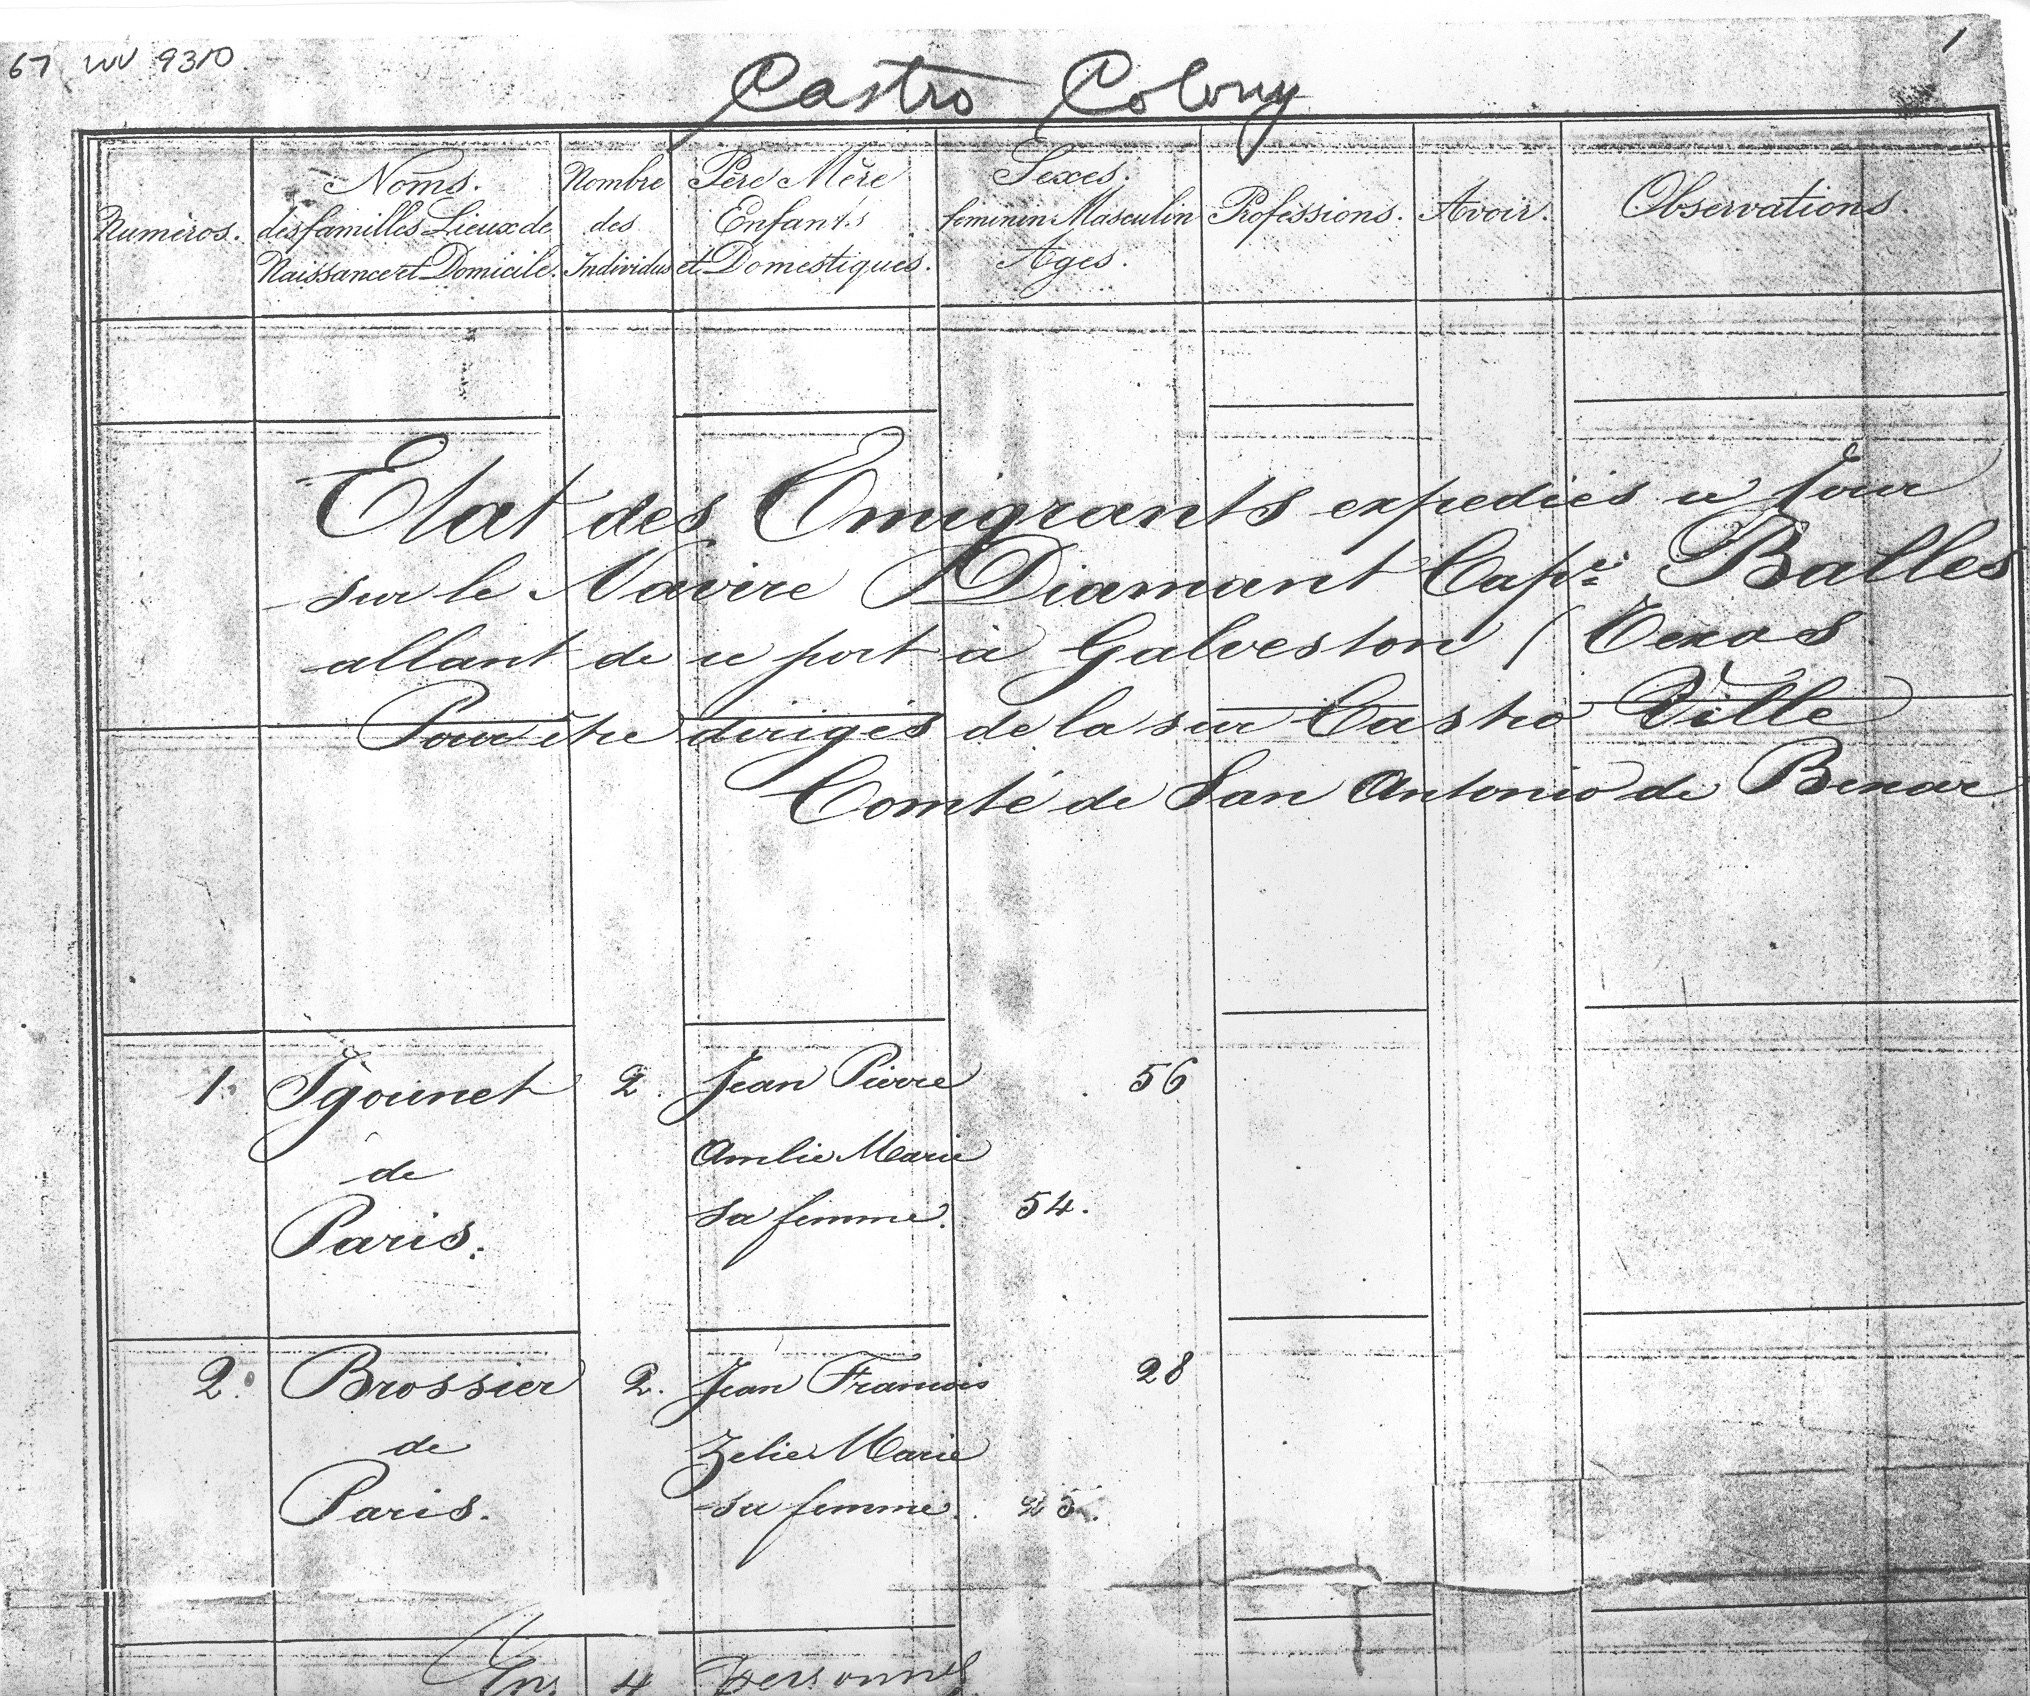 67 WV 9310
1
Castro Colony
Numèros.
Noms.
des familles Lieux de
Naissance et Domicile.
Nombre
des
Individus
Père Mère
Enfants
et Domestiques.
Sexes.
feminin Masculin
Ages.
Professions.
Avoir.
Observations.
Etat des Emigrants expediés ce Jour
sur le Navire Diamant Cape Balles
allant de ce port à Galveston (Texas
Pour être dirigés de la sur Castro Ville
Comté de San Antonio de Bexar
1. Igounet 2. Jean Pierre 56
Amlie Marie
de
sa femme. 54.
Paris.
2. Brossier 2. Jean Francois 28
de Zelie Marie
Paris. sa femme. 25.
Ens 4 personnes